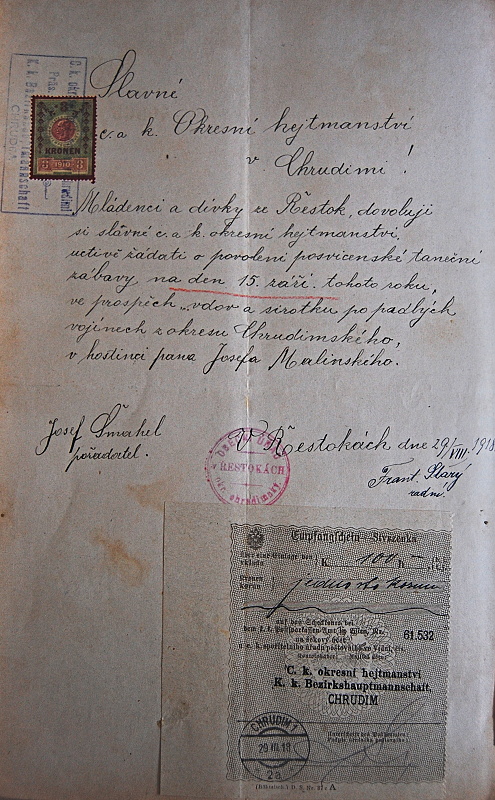 Slavné
c. a k. Okresní hejtmanství
v Chrudimi!
Mládenci a dívky ze Řestok, dovolují
si slavné c. a k. okresní hejtmanství,
uctivě žádati o povolení posvícenské taneční
zábavy na den 15. září tohoto roku,
ve prospěch vdov a sirotků po padlých
vojínech z okresu Chrudimského,
v hostinci pana Josefa Malinského.
Josef Šmahel
pořadatel.
V Řestokách dne 29/VIII. 1918
Frant. Starý
radní.
KRONEN
3 1910 3
CHRUDIM
ŘESTOKÁCH
okr. chrudimský
Empfangschein Stvrzenka
über eine Einlage von
vkladu
K 100 h
Kronen
korun
jedno sto korun
auf den Scheckkonto bei
dem k. k. Postsparkassen-Amt in Wien, Nr.
na šekový účet
u c. k. spořitelního úřadu poštovního ve Vídni, čís.
61.532
C. k. okresní hejtmanství
K. k. Bezirkshauptmannschaft,
CHRUDIM
CHRUDIM 1
29 VIII 18
2a